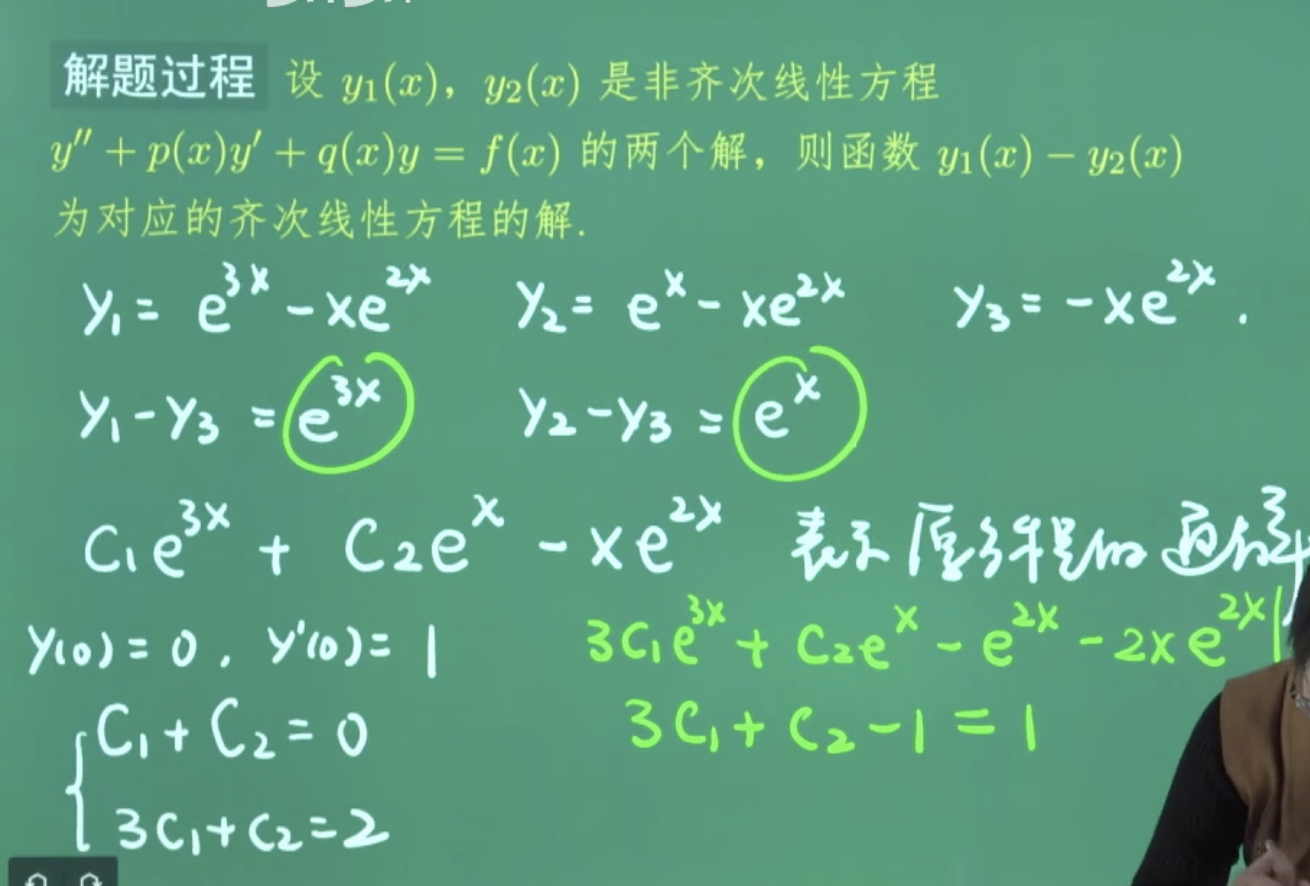 解题过程 设 y₁(x)，y₂(x) 是非齐次线性方程
y″ + p(x)y′ + q(x)y = f(x) 的两个解，则函数 y₁(x) − y₂(x)
为对应的齐次线性方程的解.
y₁ = e³ˣ − xe²ˣ y₂ = eˣ − xe²ˣ y₃ = −xe²ˣ.
y₁ − y₃ = e³ˣ y₂ − y₃ = eˣ
C₁e³ˣ + C₂eˣ − xe²ˣ 表示原方程的通解
y(0) = 0, y′(0) = 1 3C₁e³ˣ + C₂eˣ − e²ˣ − 2xe²ˣ|
C₁ + C₂ = 0 3C₁ + C₂ − 1 = 1
3C₁ + C₂ = 2